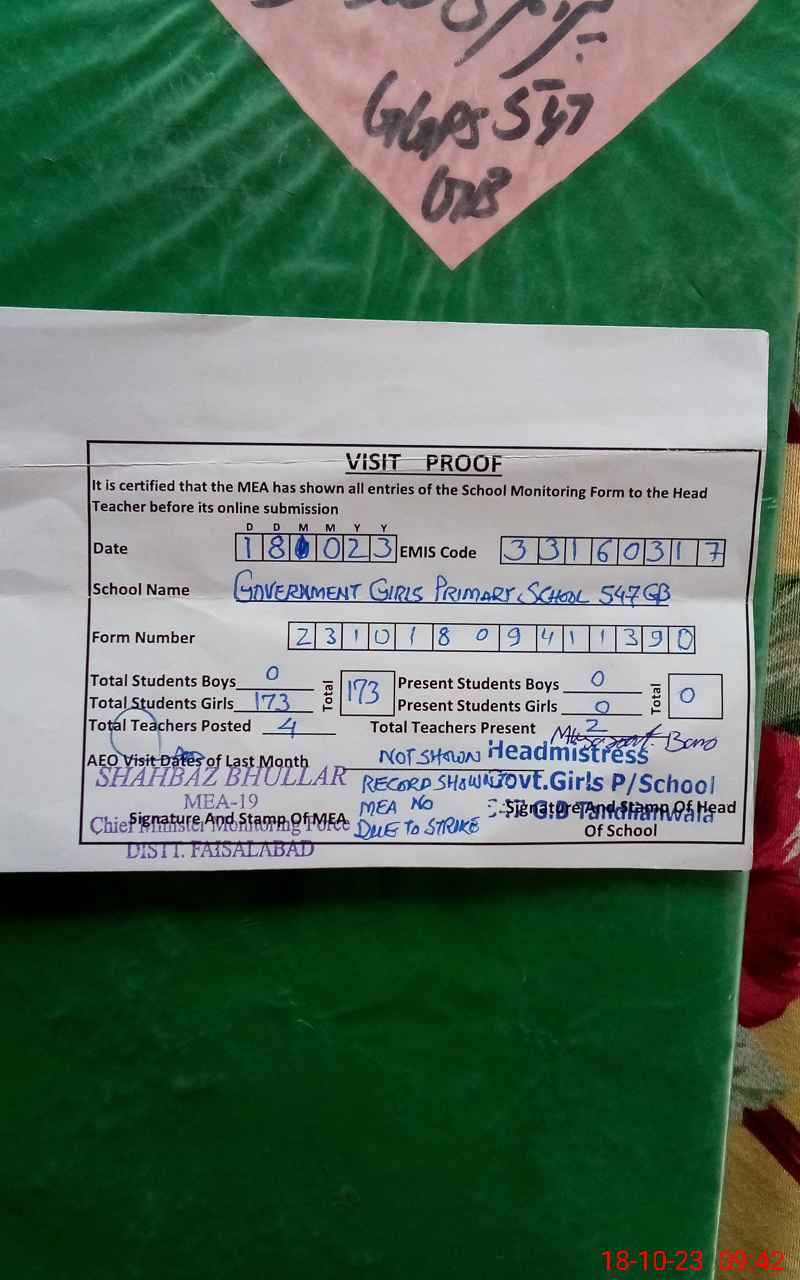 GGPS 547
GB
VISIT PROOF
It is certified that the MEA has shown all entries of the School Monitoring Form to the Head
Teacher before its online submission
D D M M Y Y
Date 18 023 EMIS Code 33160317
School Name GOVERNMENT GIRLS PRIMARY SCHOOL 547 GB
Form Number 23101809411390
Total Students Boys 0 Total 173 Present Students Boys 0 Total 0
Total Students Girls 173 Present Students Girls 0
Total Teachers Posted 4 Total Teachers Present 2
Bano
AEO Visit Dates of Last Month NOT SHOWN Headmistress
SHAHBAZ BHULLAR RECORD SHOWN TO Govt.Girls P/School
MEA-19 MEA NO
Signature And Stamp Of MEA Signature And Stamp Of Head
Of School
Chief Minister Monitoring Force DUE TO STRIKE G.B Tandlianwala
DISTT. FAISALABAD
18-10-23 09:42